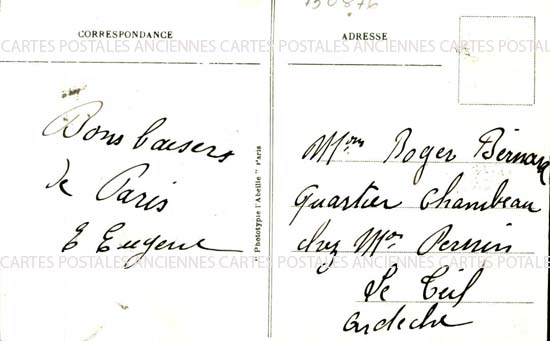 750876
CORRESPONDANCE
ADRESSE
CARTES POSTALES ANCIENNES CARTES POSTALES ANCIENNES CARTES POSTALES ANCIENNES CARTES POSTALES
Bons baisers
de Paris
E Eugene
"Phototypie l'Abeille" Paris
Mme Roger Bernard
quartier Chambeau
chez Mr Perrin
Le Teil
ardeche
CARTES POSTALES ANCIENNES CARTES POSTALES ANCIENNES CARTES POSTALES ANCIENNES CARTES POSTALES